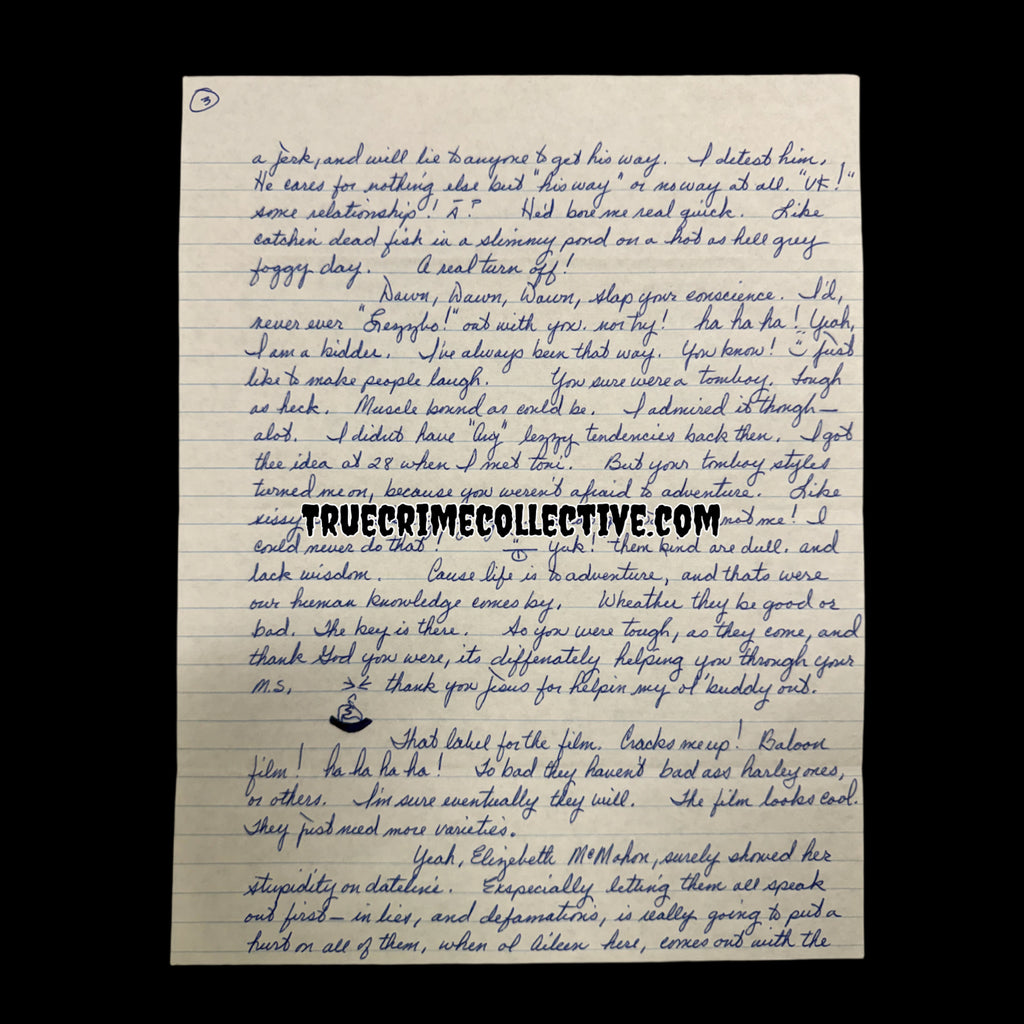 3
a jerk, and will lie to anyone to get his way. I detest him.
He cares for nothing else but "his way" or no way at all.
some relationship! He'd bore me real quick. Like
catchin dead fish in a slimmy pond on a hot as hell grey
foggy day. A real turn off!
Dawn, Dawn, Dawn, slap your conscience. I'd,
never ever "Lezzbo!" out with you. nor try! ha ha ha! Yeah,
I am a kidder. I've always been that way. You know! just
like to make people laugh. You sure were a tomboy. Tough
as heck. Muscle bound as could be. I admired it though—
alot. I didn't have "any" lezzy tendencies back then. I got
thee idea at 28 when I met toni. But your tomboy styles
turned me on, because you weren't afraid to adventure. Like
sissy
TRUECRIMECOLLECTIVE.COM
not me! I
could never do that! Yuk! them kind are dull. and
lack wisdom. Cause life is to adventure, and thats were
our human knowledge comes by. Wheather they be good or
bad. The key is there. So you were tough, as they come, and
thank God you were, its diffenately helping you through your
M.S. thank you Jesus for helpin my ol' buddy out.
That label for the film. Cracks me up! Baloon
film! ha ha ha ha! To bad they haven't bad ass harley ones,
or others. I'm sure eventually they will. The film looks cool.
They just need more varieties.
Yeah, Elizebeth McMahon, surely showed her
stupidity on dateline. Exspecially letting them all speak
out first— in lies, and defamations, is really going to put a
hurt on all of them, when ol Aileen here, comes out with the